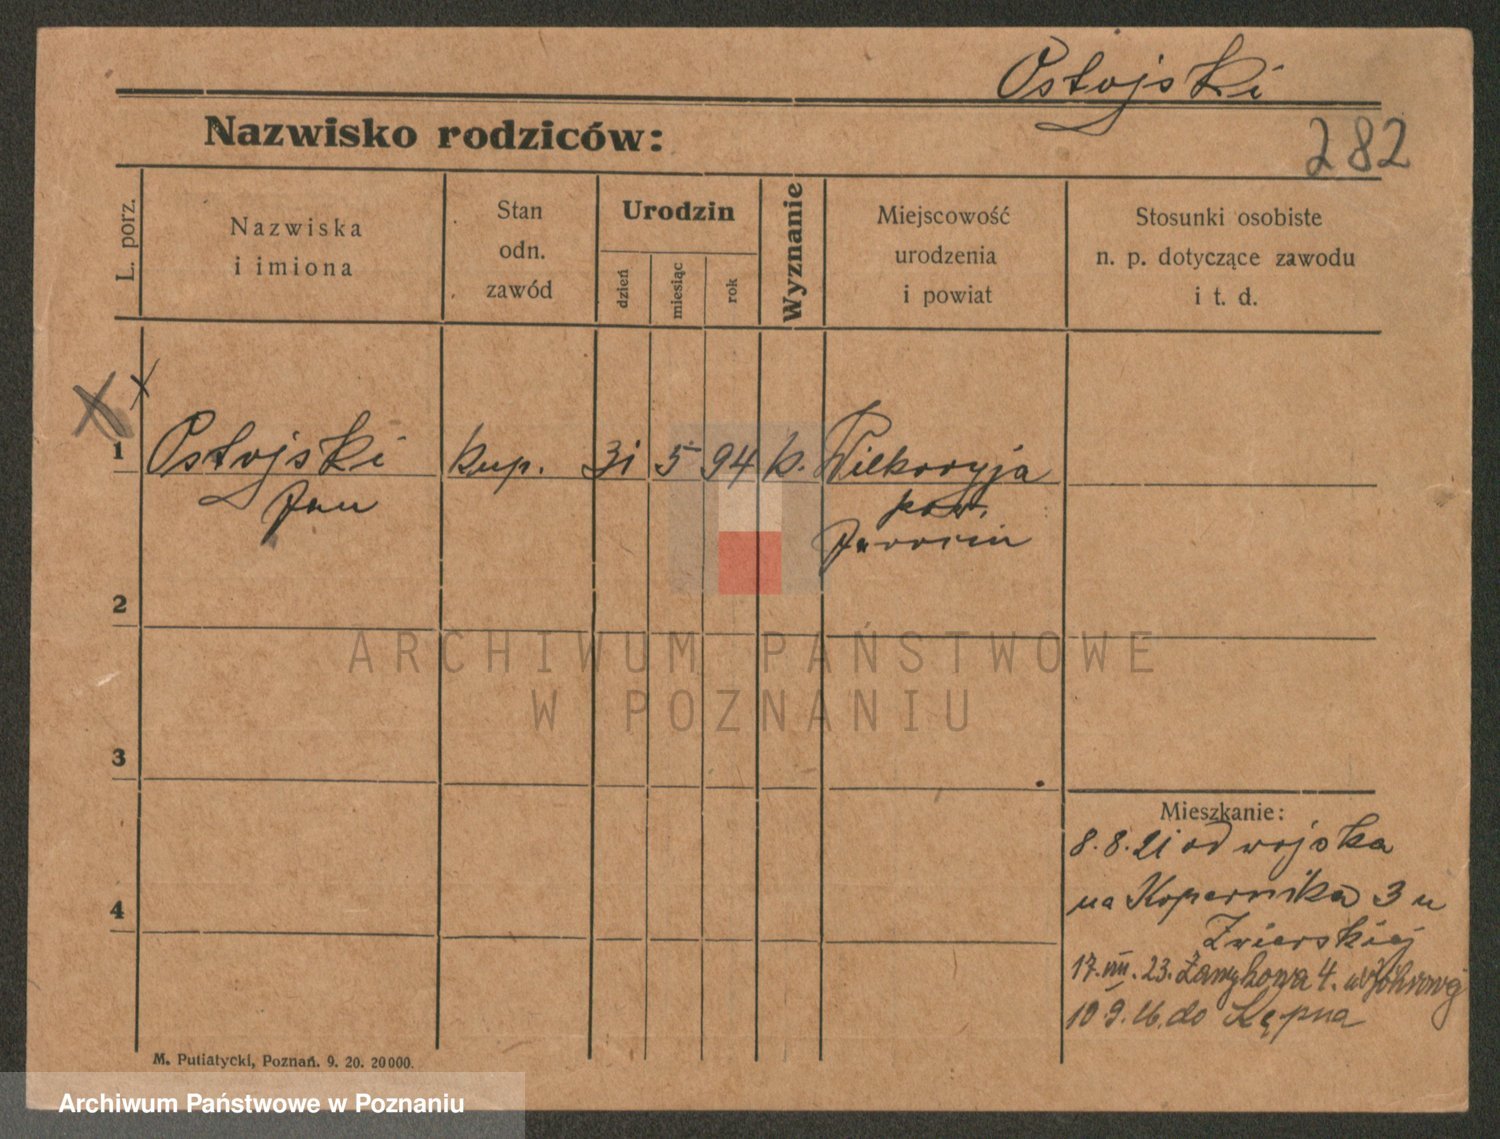 Ostojski
Nazwisko rodziców:
282
L. porz.
Nazwiska
i imiona
Stan
odn.
zawód
Urodzin
dzień
miesiąc
rok
Wyznanie
Miejscowość
urodzenia
i powiat
Stosunki osobiste
n. p. dotyczące zawodu
i t. d.
1 Ostojski kup. 31 5 94 k. Wilkoryja
Jan
pow.
Jarocin
2
ARCHIWUM PAŃSTWOWE
W POZNANIU
3
4
Mieszkanie:
8.8.21 od wojska
na Kopernika 3 u
Zwierskiej
17.VIII.23. Zamkowa 4. u
10.9.26. do Kępna
M. Putiatycki, Poznań. 9. 20. 20000.
Archiwum Państwowe w Poznaniu